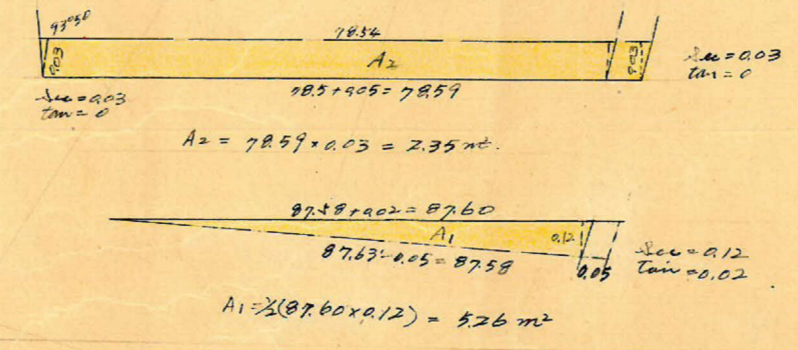 93°50
78.54
0.03
A2
0.03
Sec = 0.03
tan = 0
78.5+0.05 = 78.59
Sec = 0.03
tan = 0
A2 = 78.59 x 0.03 = 2.35 mt.
87.58+0.02 = 87.60
A1
0.12
87.63-0.05 = 87.58
0.05
Sec = 0.12
Tan = 0.02
A1 = ½(87.60x0.12) = 5.26 m²